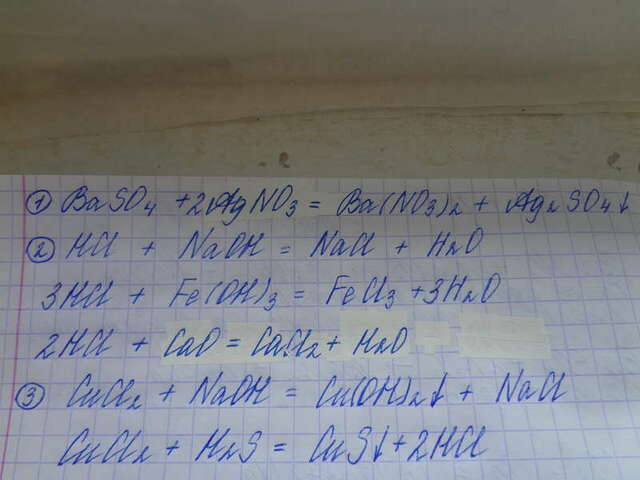 ① BaSO₄ + 2AgNO₃ = Ba(NO₃)₂ + Ag₂SO₄↓
② HCl + NaOH = NaCl + H₂O
3HCl + Fe(OH)₃ = FeCl₃ + 3H₂O
2HCl + CaO = CaCl₂ + H₂O
③ CuCl₂ + NaOH = Cu(OH)₂↓ + NaCl
CuCl₂ + H₂S = CuS↓ + 2HCl